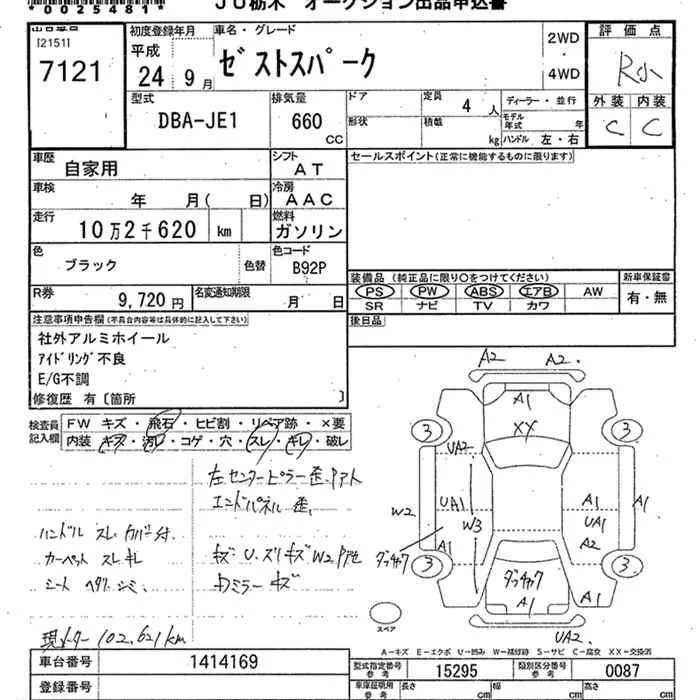 *0025481*
JU栃木 オークション出品申込書
[2151]
7121
初度登録年月
平成
24 9月
車名・グレード
ゼストスパーク
2WD
・
4WD
評価点
R小
外装 内装
C C
型式
DBA-JE1
排気量
660
CC
ドア
定員 4 人
形状
積載 kg
ディーラー・並行
モデル年式 年
ハンドル 左・右
車歴 自家用
シフト AT
車検 年 月( 日)
冷房 AAC
走行 10万2千620 km
燃料 ガソリン
色 ブラック 色替
色コード B92P
R券 9,720円
名変通知期限 月 日
セールスポイント(正常に機能するものに限ります)
装備品 (純正品に限り○をつけてください)
PS PW ABS エアB AW
SR ナビ TV カワ
新車保証書
有・無
後日品
注意事項申告欄(不具合内容等は具体的に記入して下さい)
社外アルミホイール
アイドリング不良
E/G不調
修復歴 有〔箇所 〕
検査員記入欄
FW キズ・飛石・ヒビ割・リペア跡・×要
内装 キズ・汚レ・コゲ・穴・スレ・キレ・破レ
左センターピラー歪、アト
エンドパネル歪、
ハンドル スレ カバー付
カーペット スレ キレ
シート ヘタリ シミ
キズ U、ズリキズ W2 アセ
カミラー キズ
現メーター 102,621km
A2 A2
A1
XX
3 3
UA2
W2 UA1 W3 A1 UA1 A1
A1 A2
ダッチャク
3 3
ダッチャク
A1 A1
UA2
スペア
A-キズ E-エクボ U-凹み W-補修跡 S-サビ C-腐食 XX-交換済
車台番号 1414169
登録番号
型式指定番号参考 15295
類別区分番号参考 0087
車庫証明用参考 長さ cm 幅 cm 高さ cm